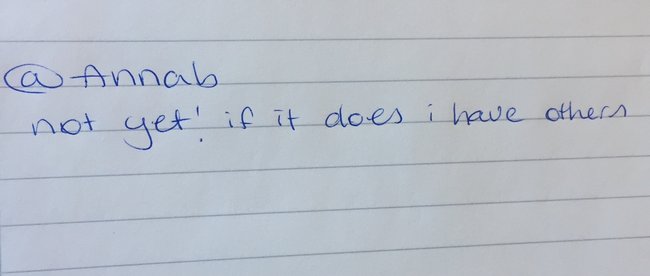 @Annab
not yet! if it does i have others